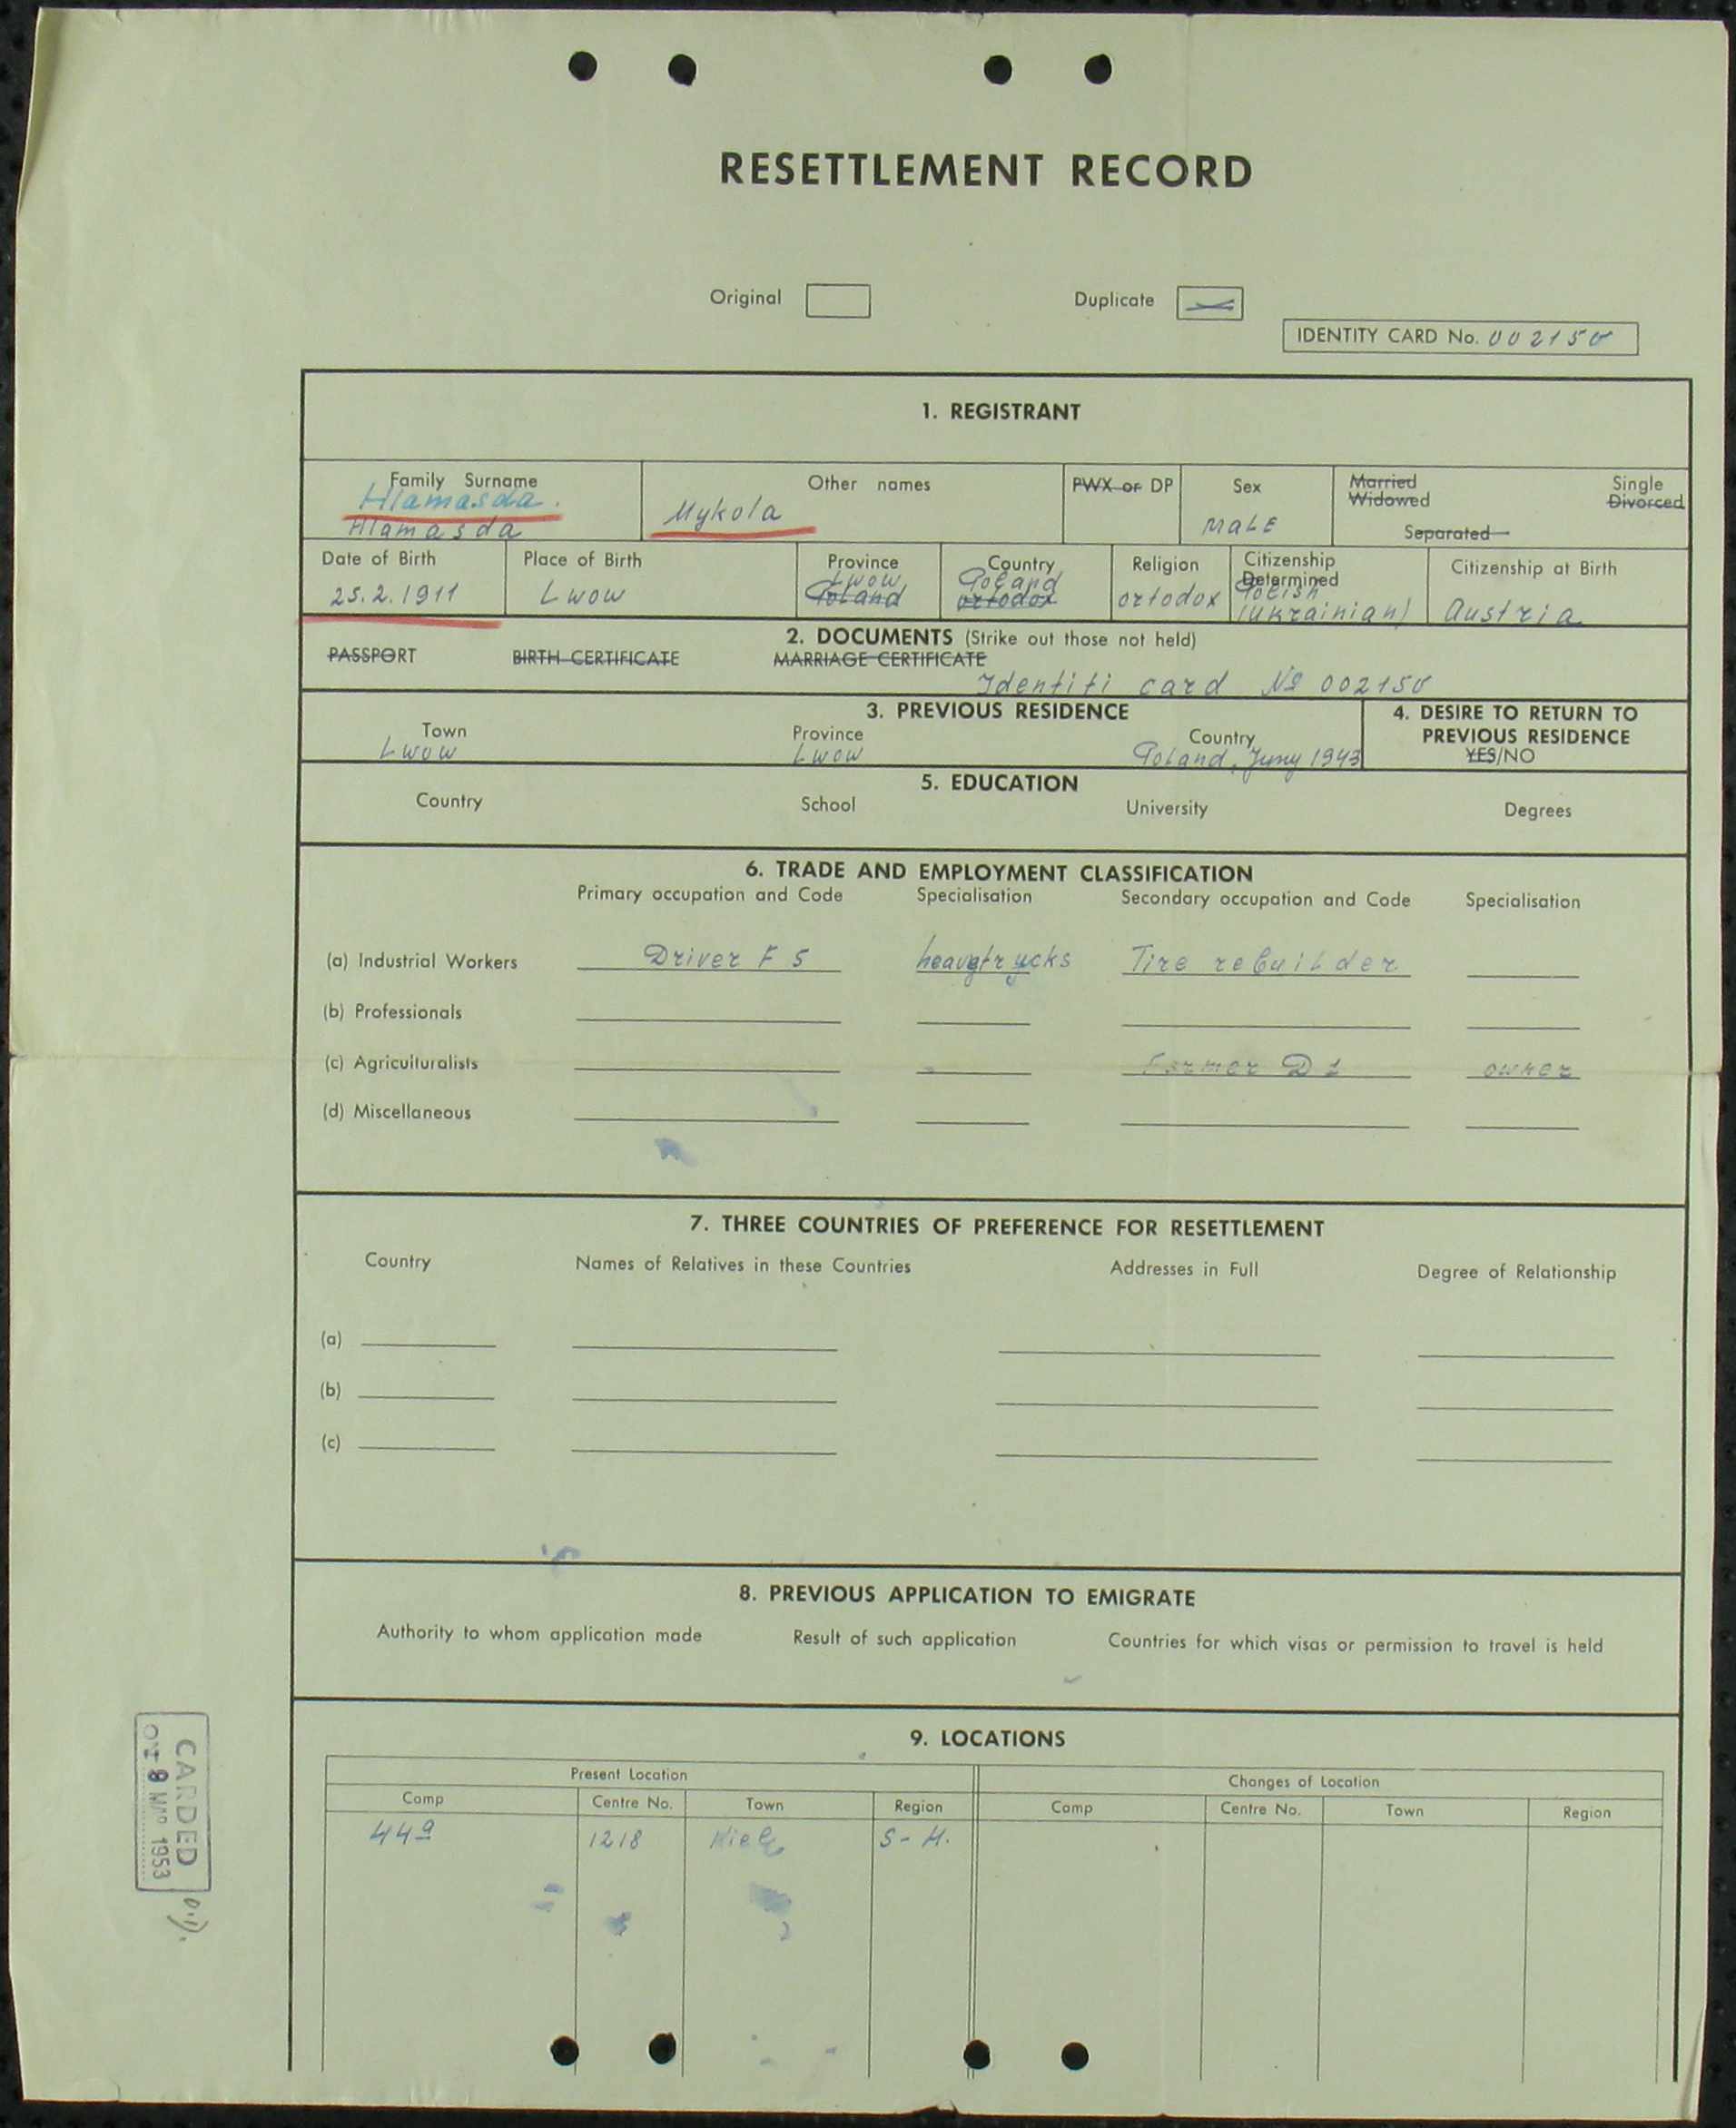 RESETTLEMENT RECORD
Original
Duplicate
IDENTITY CARD No. 002150
1. REGISTRANT
Family Surname
Hlamasda.
Hlamasda
Other names
Mykola
PWX or DP
Sex
MaLE
Married Single
Widowed Divorced
Separated
Date of Birth
25.2.1911
Place of Birth
Lwow
Province
Lwow
Poland
Country
Poland
ortodox
Religion
ortodox
Citizenship
Determined
Polish
(Ukrainian)
Citizenship at Birth
Austria
2. DOCUMENTS (Strike out those not held)
PASSPORT BIRTH CERTIFICATE MARRIAGE CERTIFICATE
Identiti card № 002150
3. PREVIOUS RESIDENCE
Town
Lwow
Province
Lwow
Country
Poland, Juny 1943
4. DESIRE TO RETURN TO
PREVIOUS RESIDENCE
YES/NO
5. EDUCATION
Country School University Degrees
6. TRADE AND EMPLOYMENT CLASSIFICATION
Primary occupation and Code Specialisation Secondary occupation and Code Specialisation
(a) Industrial Workers Driver F 5 heavytrucks Tire rebuilder
(b) Professionals
(c) Agriculturalists Farmer D1 owner
(d) Miscellaneous
7. THREE COUNTRIES OF PREFERENCE FOR RESETTLEMENT
Country Names of Relatives in these Countries Addresses in Full Degree of Relationship
(a)
(b)
(c)
8. PREVIOUS APPLICATION TO EMIGRATE
Authority to whom application made Result of such application Countries for which visas or permission to travel is held
9. LOCATIONS
Present Location Changes of Location
Camp Centre No. Town Region Camp Centre No. Town Region
44a 1218 Kiel S-H.
CARDED
8 MAR 1953